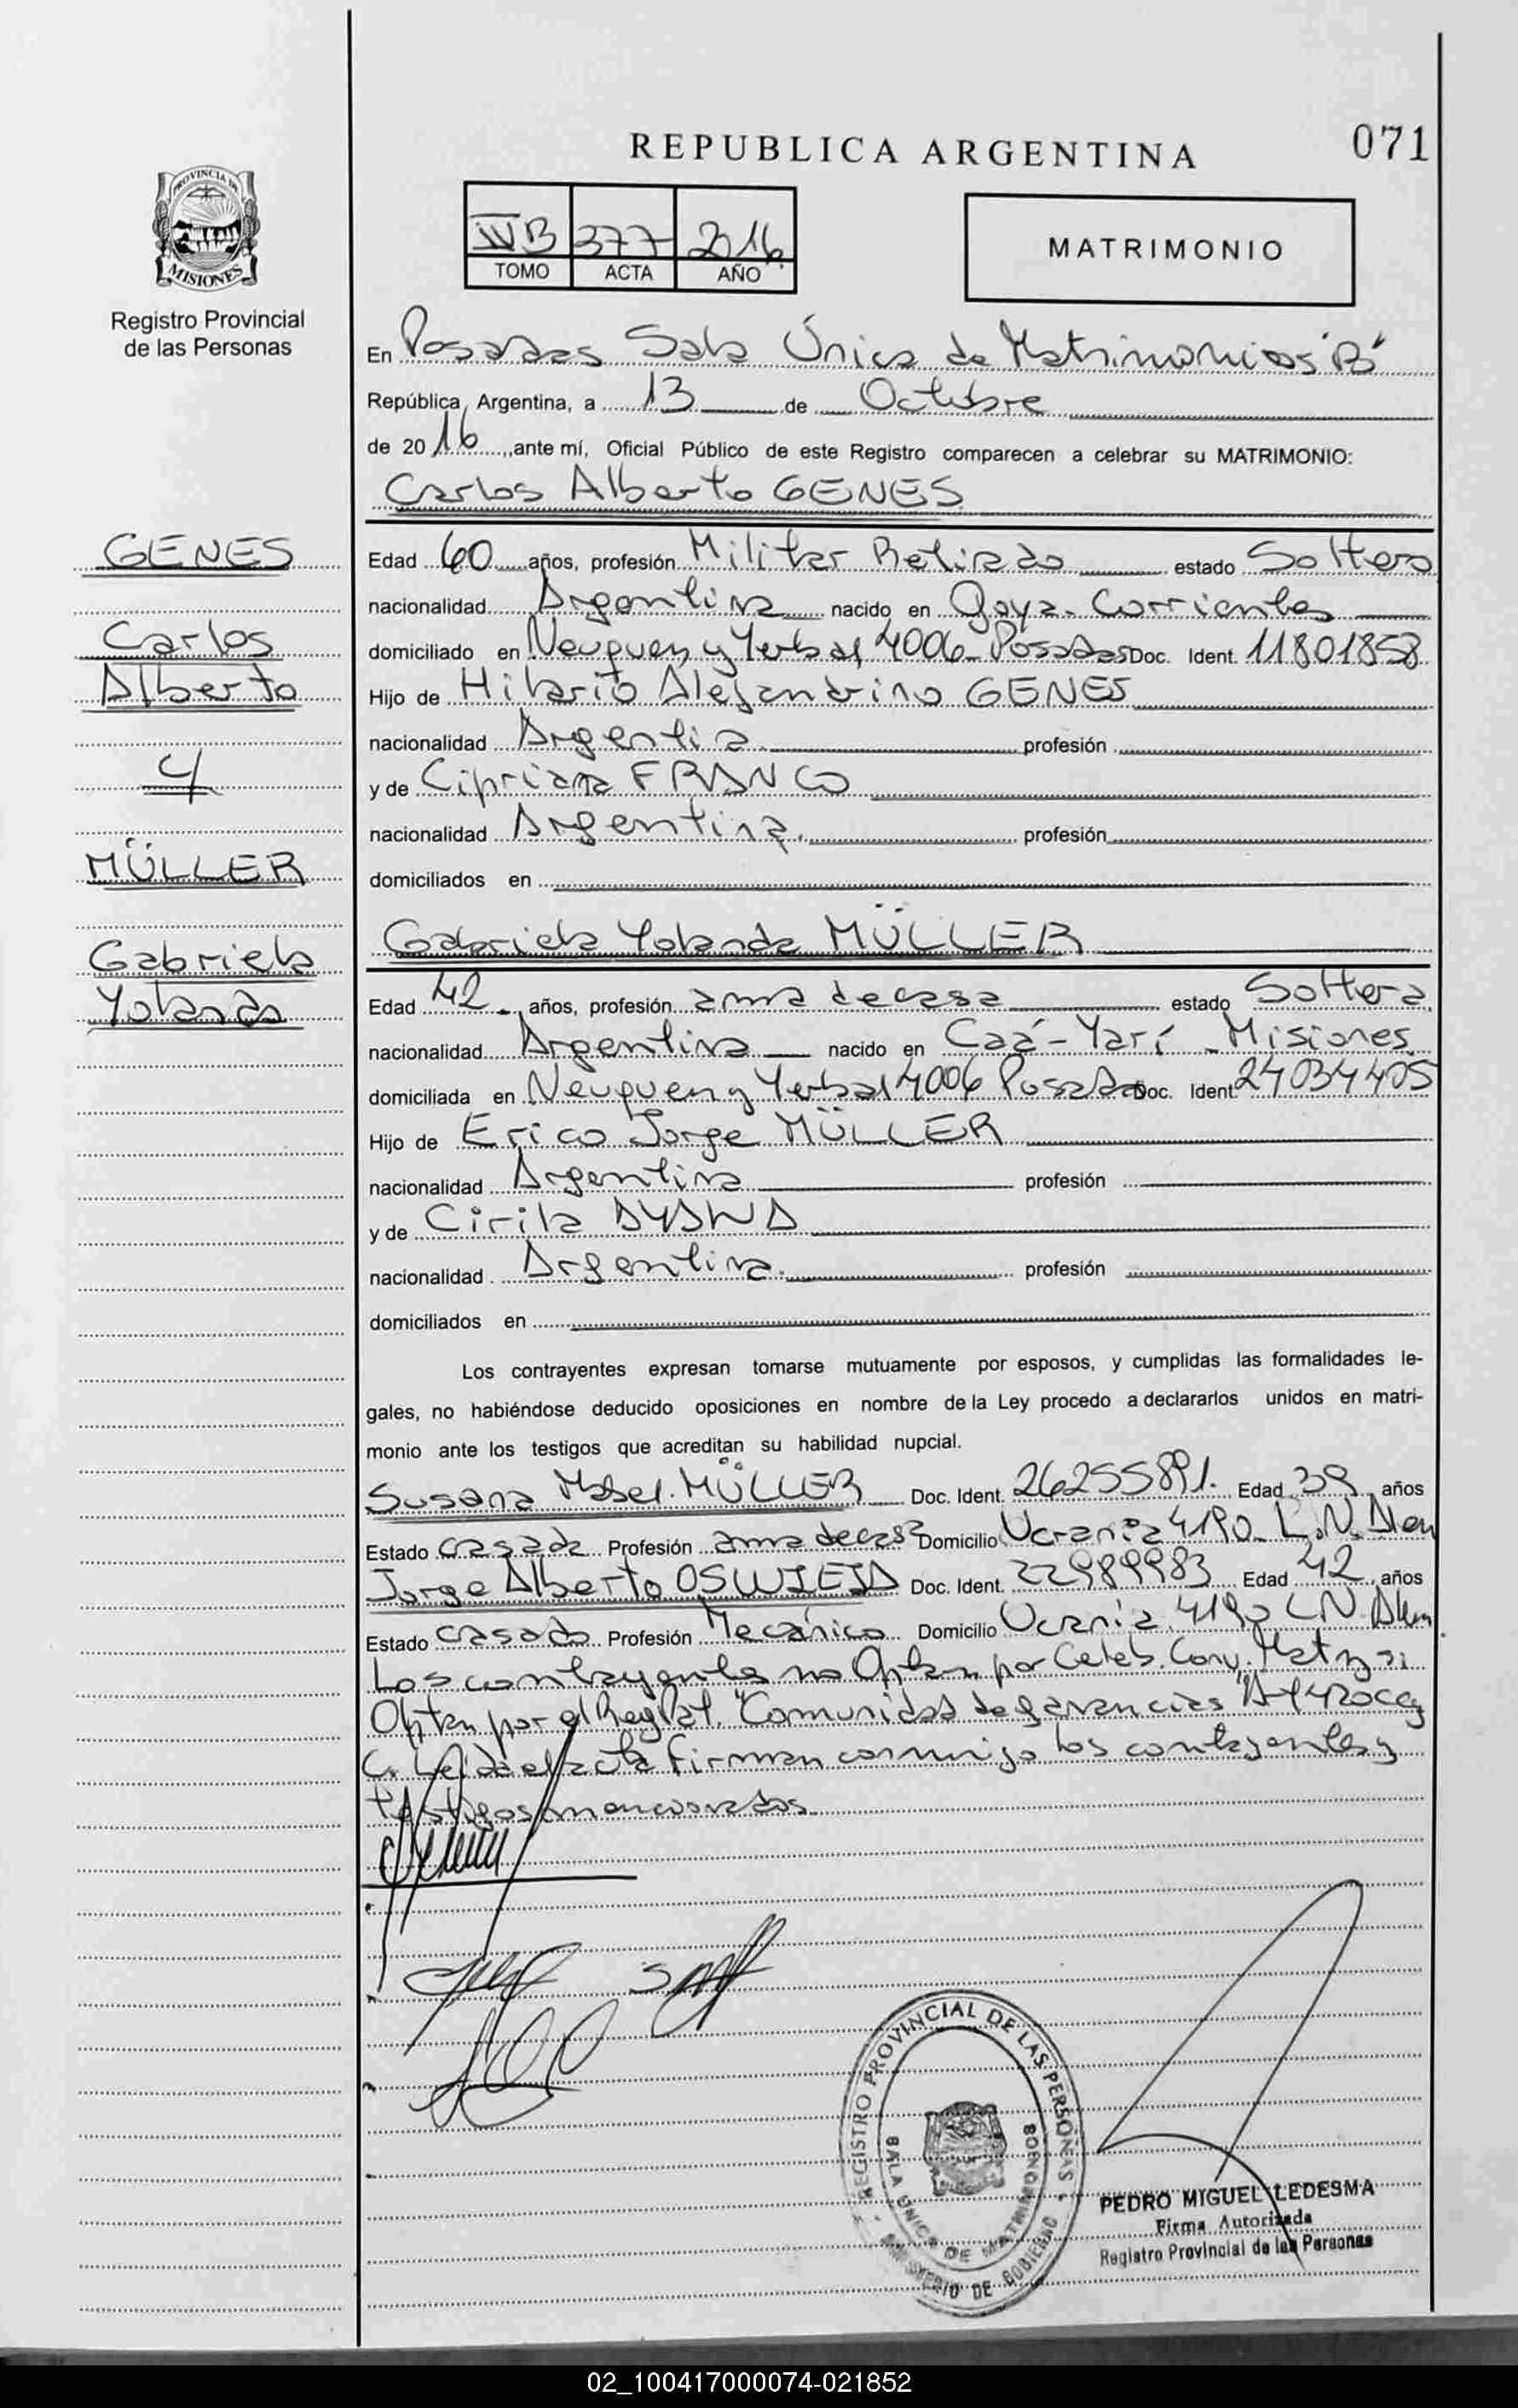 REPUBLICA ARGENTINA
071
PROVINCIA DE
MISIONES
Registro Provincial
de las Personas
IVB 377 2016
TOMO ACTA AÑO
MATRIMONIO
En Posadas Sala Única de Matrimonios "B"
República Argentina, a 13 de Octubre
de 2016, ante mí, Oficial Público de este Registro comparecen a celebrar su MATRIMONIO:
Carlos Alberto GENES
GENES
Carlos
Alberto
y
MÜLLER
Gabriela
Yolanda
Edad 60 años, profesión Militar Retirado estado Soltero
nacionalidad Argentina nacido en Goya - Corrientes
domiciliado en Neuquen y Yerbal 4006 - Posadas Doc. Ident. 11801858
Hijo de Hilario Alejandrino GENES
nacionalidad Argentia profesión
y de Cipriana FRANCO
nacionalidad Argentina. profesión
domiciliados en
Gabriela Yolanda MÜLLER
Edad 42 años, profesión ama de casa estado Soltera
nacionalidad Argentina nacido en Caá-Yarí - Misiones
domiciliada en Neuquen y Yerbal 4006 Posadas Doc. Ident. 24034405
Hijo de Erico Jorge MÜLLER
nacionalidad Argentina profesión
y de Cirila
nacionalidad Argentina. profesión
domiciliados en
Los contrayentes expresan tomarse mutuamente por esposos, y cumplidas las formalidades le-
gales, no habiéndose deducido oposiciones en nombre de la Ley procedo a declararlos unidos en matri-
monio ante los testigos que acreditan su habilidad nupcial.
Susana Mabel MÜLLER Doc. Ident. 26255891. Edad 39 años
Estado casada Profesión ama de casa Domicilio Ucrania 4190 - L.N. Alem
Jorge Alberto OSWIEJA Doc. Ident. 22989983 Edad 42 años
Estado casado Profesión Mecánico Domicilio Ucrania 4190 L.N. Alem
Los contrayentes no Optan por Celeb. Conv. Mat y si
Optan por el Reg Pat. "Comunidad de ganancias"
C. Leída el acta firman conmigo los contrayentes y
testigos mencionados.
REGISTRO PROVINCIAL DE LAS PERSONAS
SALA ÚNICA DE MATRIMONIOS
MINISTERIO DE GOBIERNO
PEDRO MIGUEL LEDESMA
Firma Autorizada
Registro Provincial de las Personas
02_100417000074-021852